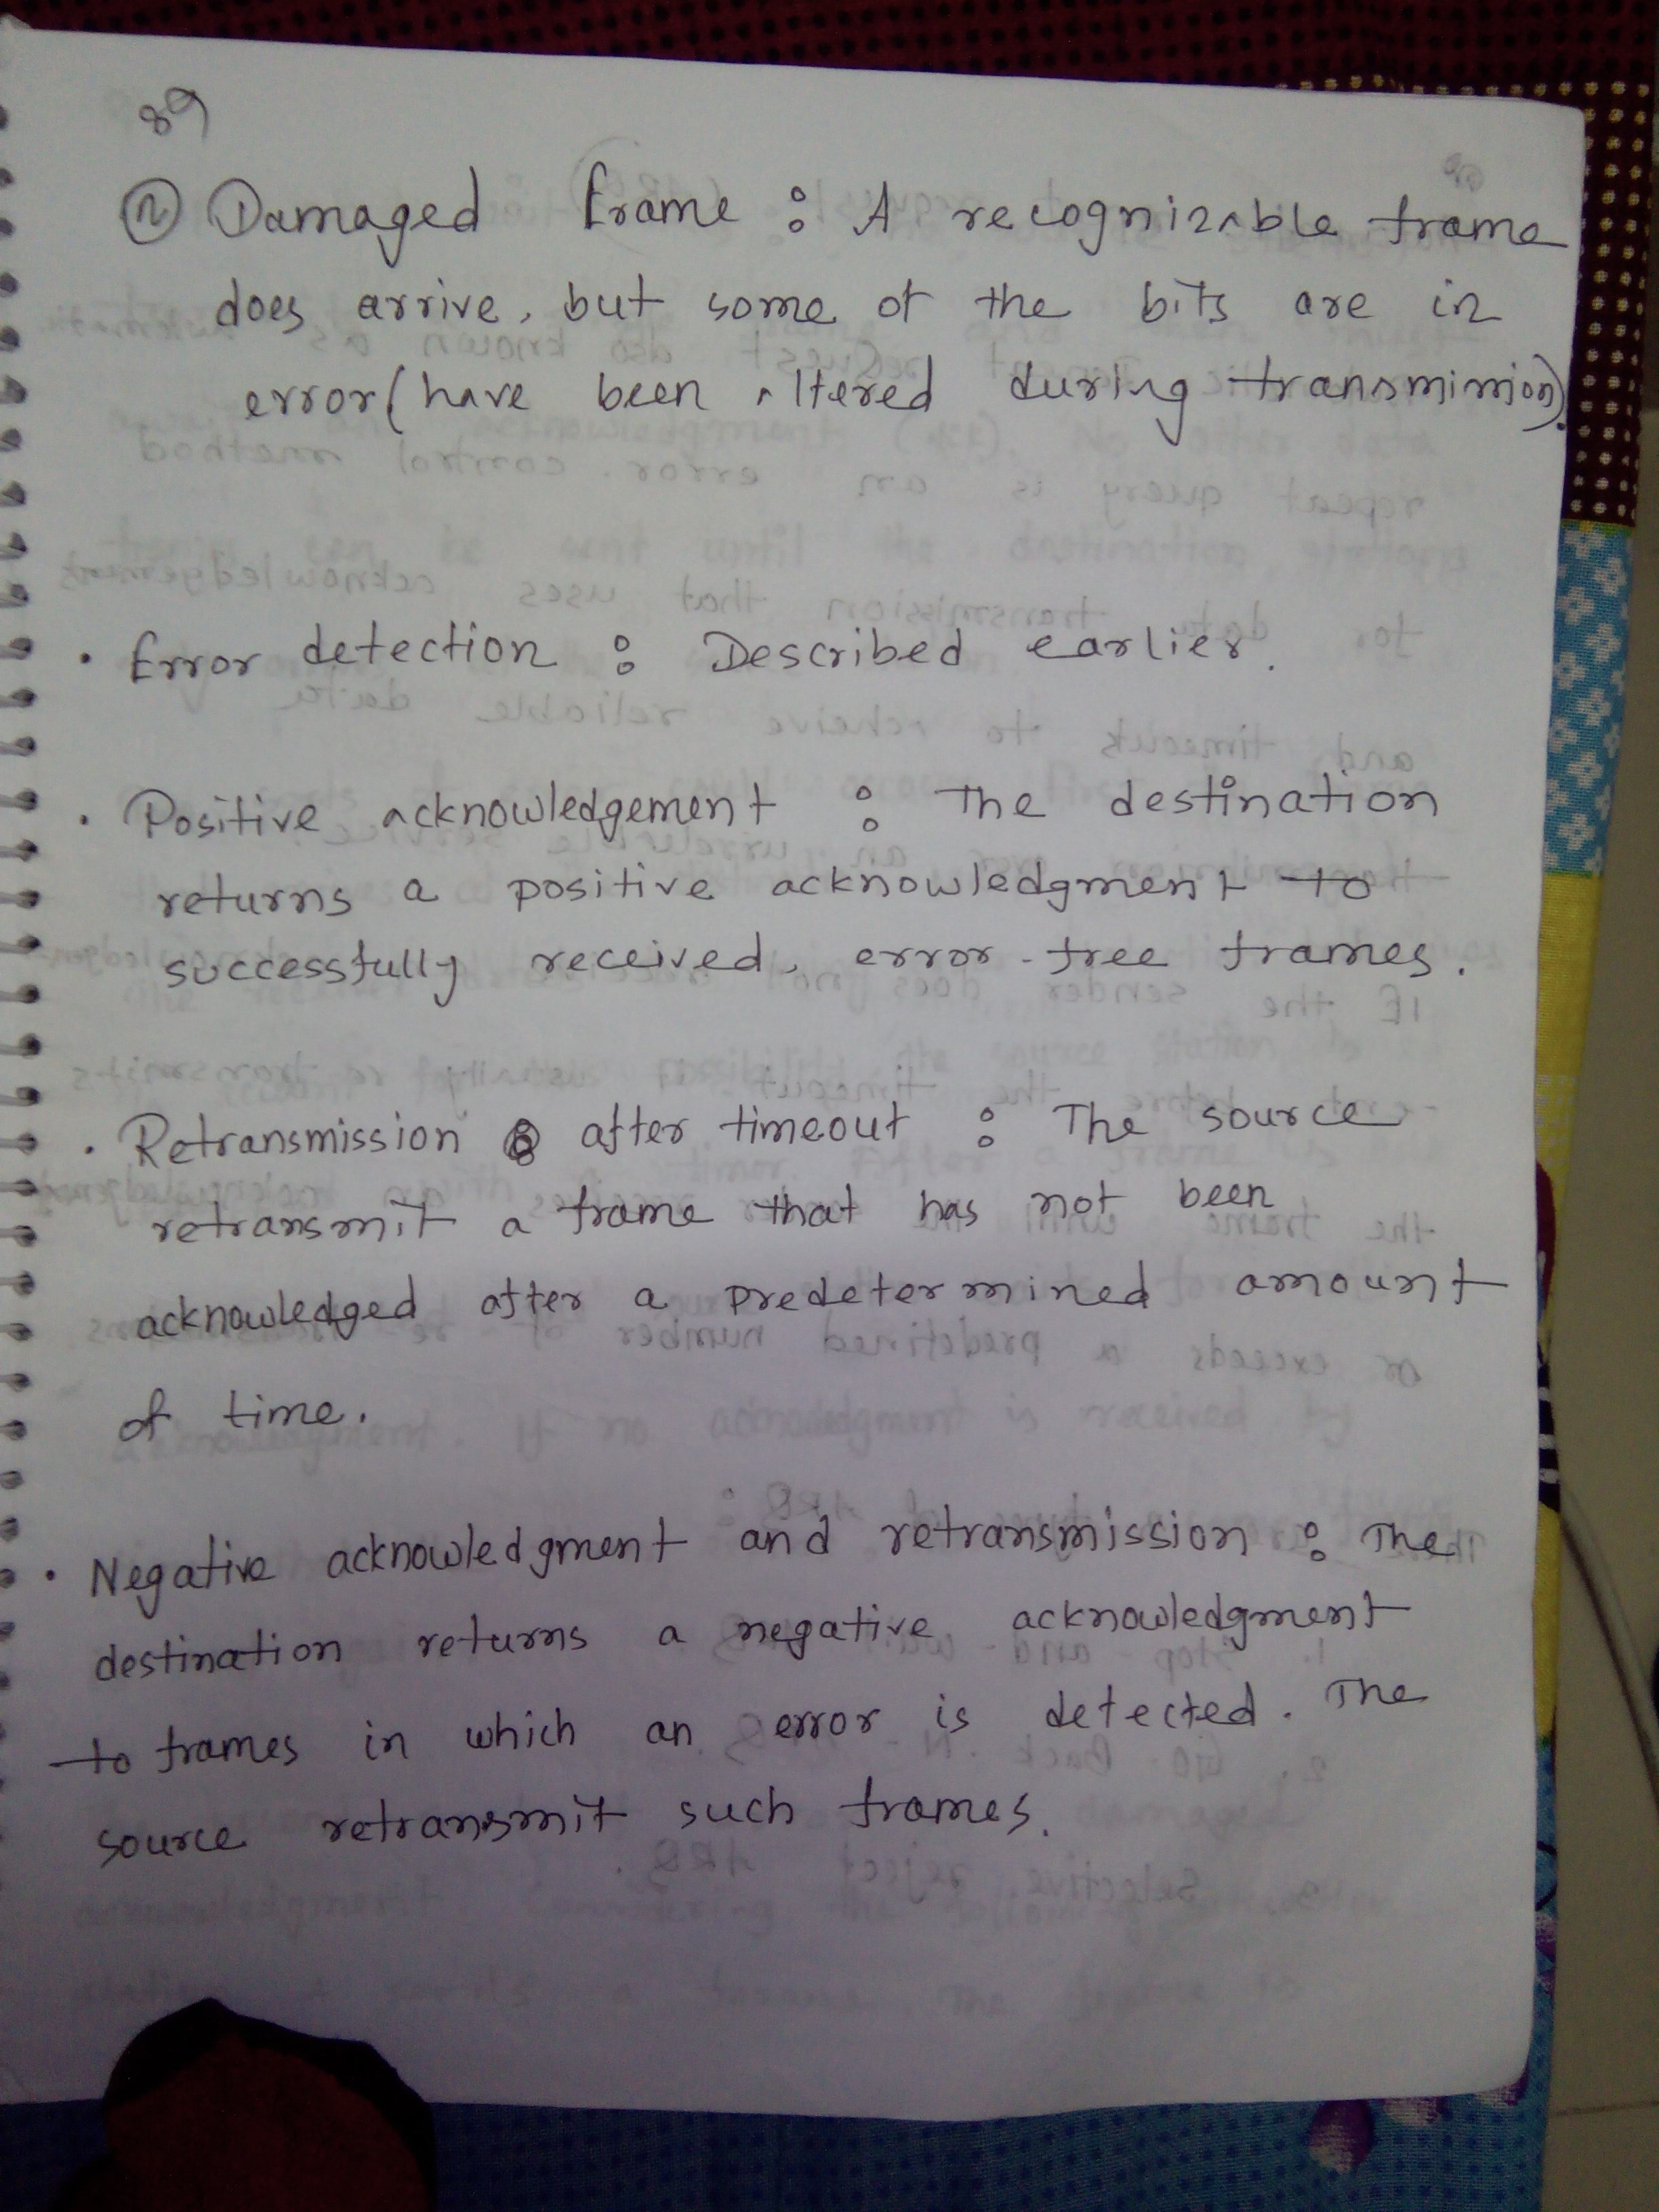 89
② Damaged frame : A recognizable frame
does arrive, but some of the bits are in
error (have been altered during transmission).
• Error detection : Described earlier.
• Positive acknowledgement : The destination
returns a positive acknowledgment to
successfully received, error-free frames.
• Retransmission after timeout : The source
retransmit a frame that has not been
acknowledged after a predetermined amount
of time.
• Negative acknowledgment and retransmission : The
destination returns a negative acknowledgment
to frames in which an error is detected. The
source retransmit such frames.